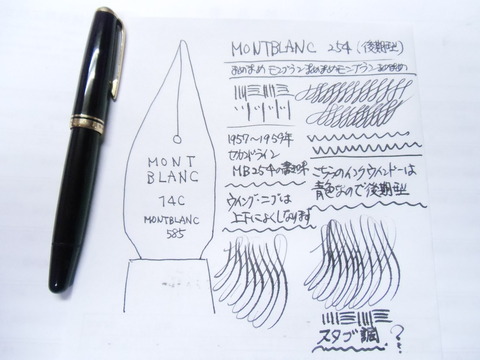 MONTBLANC 254 (後期型)
まめまめ モンブラン まめまめ モンブラン まめまめ
MONT
BLANC
14C
MONTBLANC
585
1957〜1959年
セカンドライン
MB254の書き味
ウイング・ニブは
上下によくしなります
こちらのインクウインドーは
青色なので後期型
スタブ調?